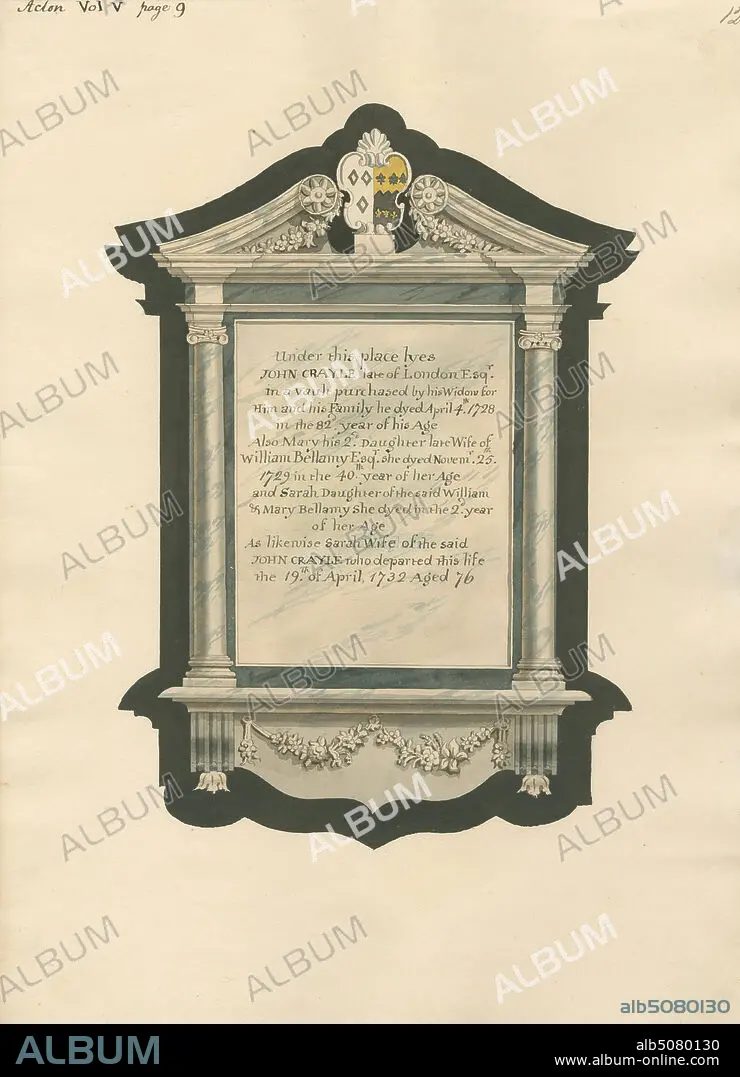 Acton Vol V page 9
Under this place lyes
JOHN CRAYLE late of London Esqr.
in a Vault purchased by his Widow for
Him and his Family he dyed April 4.th 1728
in the 82.d year of his Age
Also Mary his 2.d Daughter late Wife of
William Bellamy Esqr. she dyed Novemr. 25.th
1729 in the 40.th year of her Age
and Sarah Daughter of the said William
& Mary Bellamy She dyed in the 2.d year
of her Age
As likewise Sarah Wife of the said
JOHN CRAYLE who departed this life
the 19.th of April, 1732 Aged 76
ALBUM
alb5080130
ALBUM
alb5080130
www.album-online.com